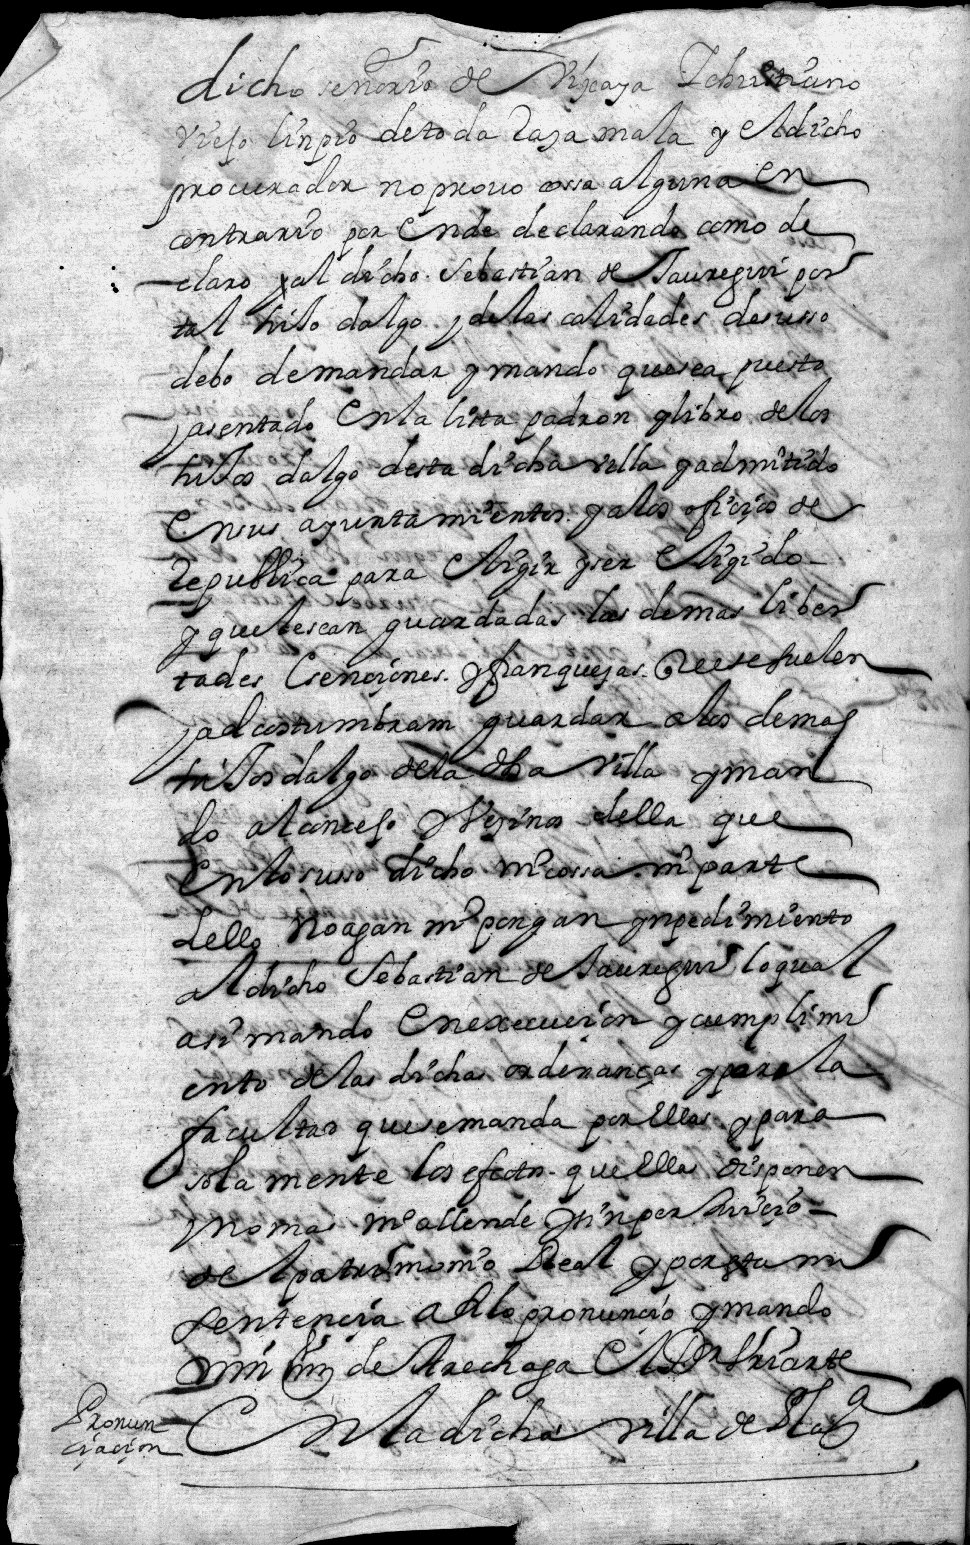 dicho señorio de Vizcaya Y christiano
viejo linpio de toda Raza mala y el dicho
procurador no provo cossa alguna en
contrario por Ende declarando como de
claro al dicho Sebastian de Jauregui por
tal hijo dalgo y de las calidades desusso
debo de mandar y mando que sea puesto
y asentado En la lista padron y libro de los
hijos dalgo desta dicha villa y admitido
En sus ayuntamientos y a los oficios de
Republica para Eligir y ser Eligido
y que le sean guardadas las demas liber
tades Esenciones y franquezas que se suelen
y acostumbram guardar a los demas
hijos dalgo de la dha villa y man
do al concejo y Vezinos della que
En lo susso dicho ni cossa ni parte
dello no agan ni pongan ynpedimiento
al dicho Sebastian de Jauregui lo qual
asi mando En execucion y cumplimi
ento de las dichas ordenanças y para la
facultad que se manda por Ellas y para
sola mente los efectos que Ellas disponen
y no mas ni allende y sin perJuicio
del patrimonio Real y por esta mi
sentencia assi lo pronuncio y mando
de Arechaga El Dor Yriarte
Pronun
ciacion
En la dicha villa de